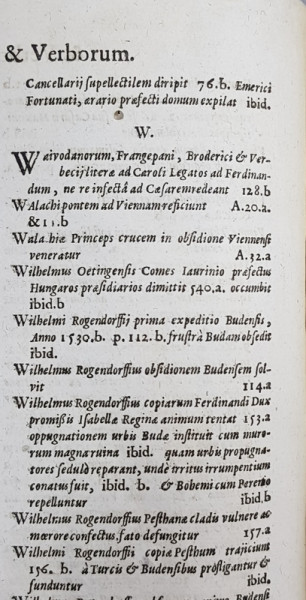 & Verborum.
Cancellarij supellectilem diripit 76.b. Emerici
Fortunati, ærario præfecti domum expilat ibid.
W.
Waivodanorum, Frangepani, Broderici & Ver-
becij literæ ad Caroli Legatos ad Ferdinan-
dum, ne re infectâ ad Cæsarem redeant 128.b
Walachi pontem ad Viennam reficiunt A.20.a.
& 11.b
Walachiæ Princeps crucem in obsidione Viennensi
veneratur A.32.a
Wilhelmus Oetingensis Comes Iaurinio præfectus
Hungaros præsidiarios dimittit 540.a. occumbit
ibid.b
Wilhelmi Rogendorffij prima expeditio Budensis,
Anno 1530.b. p. 112.b. frustrà Budam obsedit
ibid.
Wilhelmus Rogendorffius obsidionem Budensem sol-
vit 114.a
Wilhelmus Rogendorffius copiarum Ferdinandi Dux
promissis Isabellæ Reginæ animum tentat 153.a
oppugnationem urbis Budæ instituit cum muro-
rum magna ruina ibid. quam urbis propugna-
tores sedulò reparant, undè irritus irrumpentium
conatus fuit, ibid. b. & Bohemi cum Perenio
repelluntur ibid.b
Wilhelmus Rogendorffius Pesthanæ cladis vulnere ac
mœrore confectus, fato defungitur 157.a
Wilhelmi Rogendorffi copiæ Pesthum trajiciunt
156. b. à Turcis & Budensibus profligantur &
funduntur ibid.